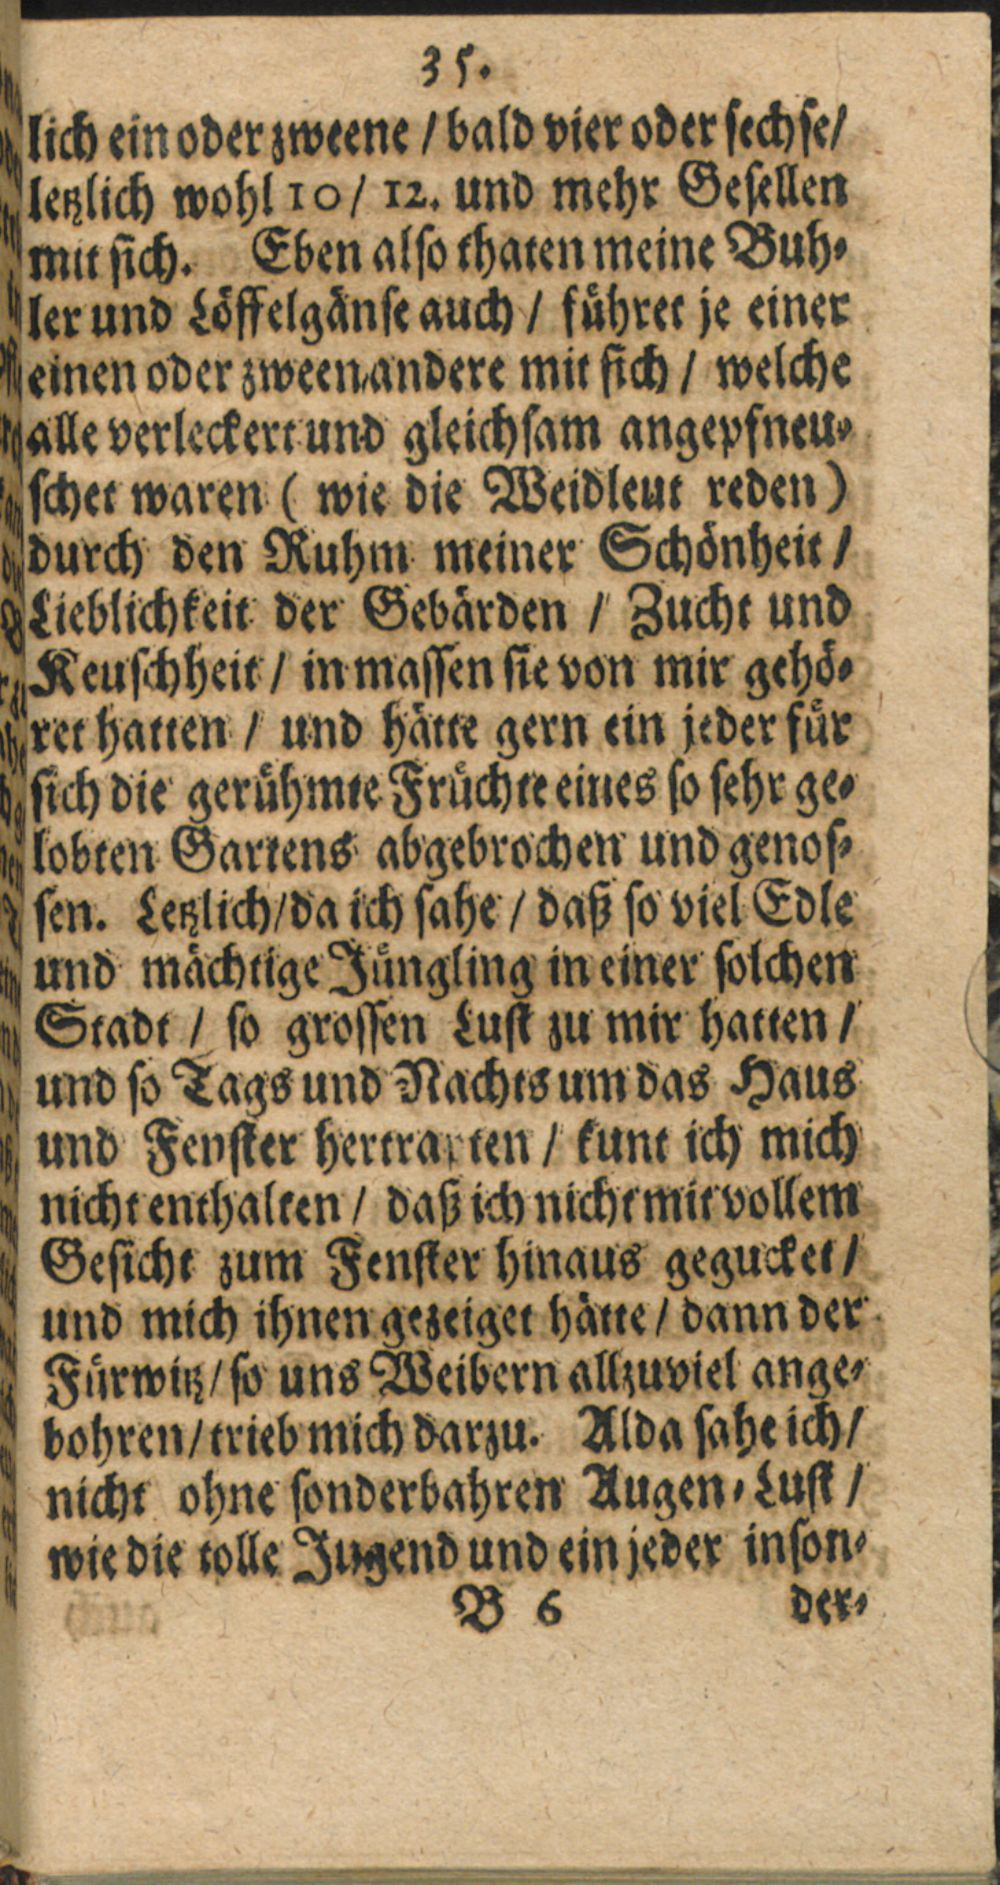 35.
lich ein oder zweene / bald vier oder sechse/
letzlich wohl 10/ 12. und mehr Gesellen
mit sich. Eben also thaten meine Buh-
ler und Löffelgänse auch / führet je einer
einen oder zween andere mit sich / welche
alle verleckert und gleichsam angepfneu-
schet waren ( wie die Weidleut reden )
durch den Ruhm meiner Schönheit /
Lieblichkeit der Gebärden / Zucht und
Keuschheit / inmassen sie von mir gehö-
ret hatten / und hätte gern ein jeder für
sich die gerühmte Früchte eines so sehr ge-
lobten Gartens abgebrochen und genos-
sen. Letzlich/da ich sahe / daß so viel Edle
und mächtige Jüngling in einer solchen
Stadt / so grossen Lust zu mir hatten /
und so Tags und Nachts um das Haus
und Fenster hertrapten / kunt ich mich
nicht enthalten / daß ich nicht mit vollem
Gesicht zum Fenster hinaus gegucket /
und mich ihnen gezeiget hätte / dann der
Fürwitz / so uns Weibern allzuviel ange-
bohren / trieb mich darzu. Alda sahe ich /
nicht ohne sonderbahren Augen-Lust /
wie die tolle Jugend und ein jeder inson-
B 6 der-